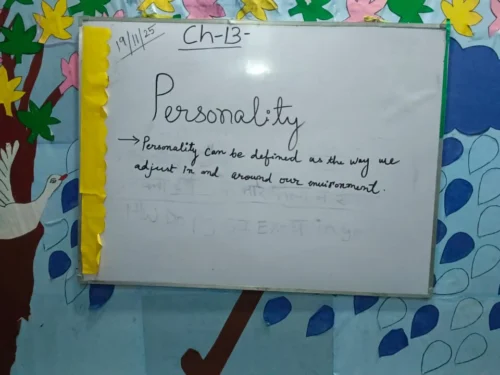 19/11/25
Ch-13-
Personality
→ Personality can be defined as the way we
adjust in and around our environment.